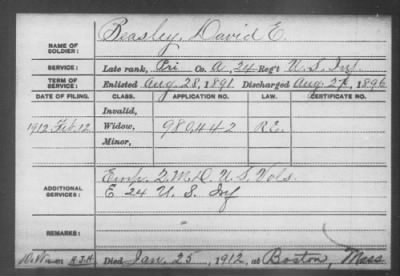 NAME OF SOLDIER: Beasley, David E.
SERVICE: Late rank, Pri Co. A, 24 Reg't U. S. Inf.
TERM OF SERVICE: Enlisted Aug. 28, 1891 Discharged Aug. 27, 1896
DATE OF FILING. CLASS. APPLICATION NO. LAW. CERTIFICATE NO.
Invalid,
1912 Feb. 12 Widow, 980442 R.E.
Minor,
ADDITIONAL SERVICES: Emp. Q.M.D. U.S. Vols.
E 24 U. S. Inf
REMARKS:
Died Jan. 25, 1912, at Boston, Mass